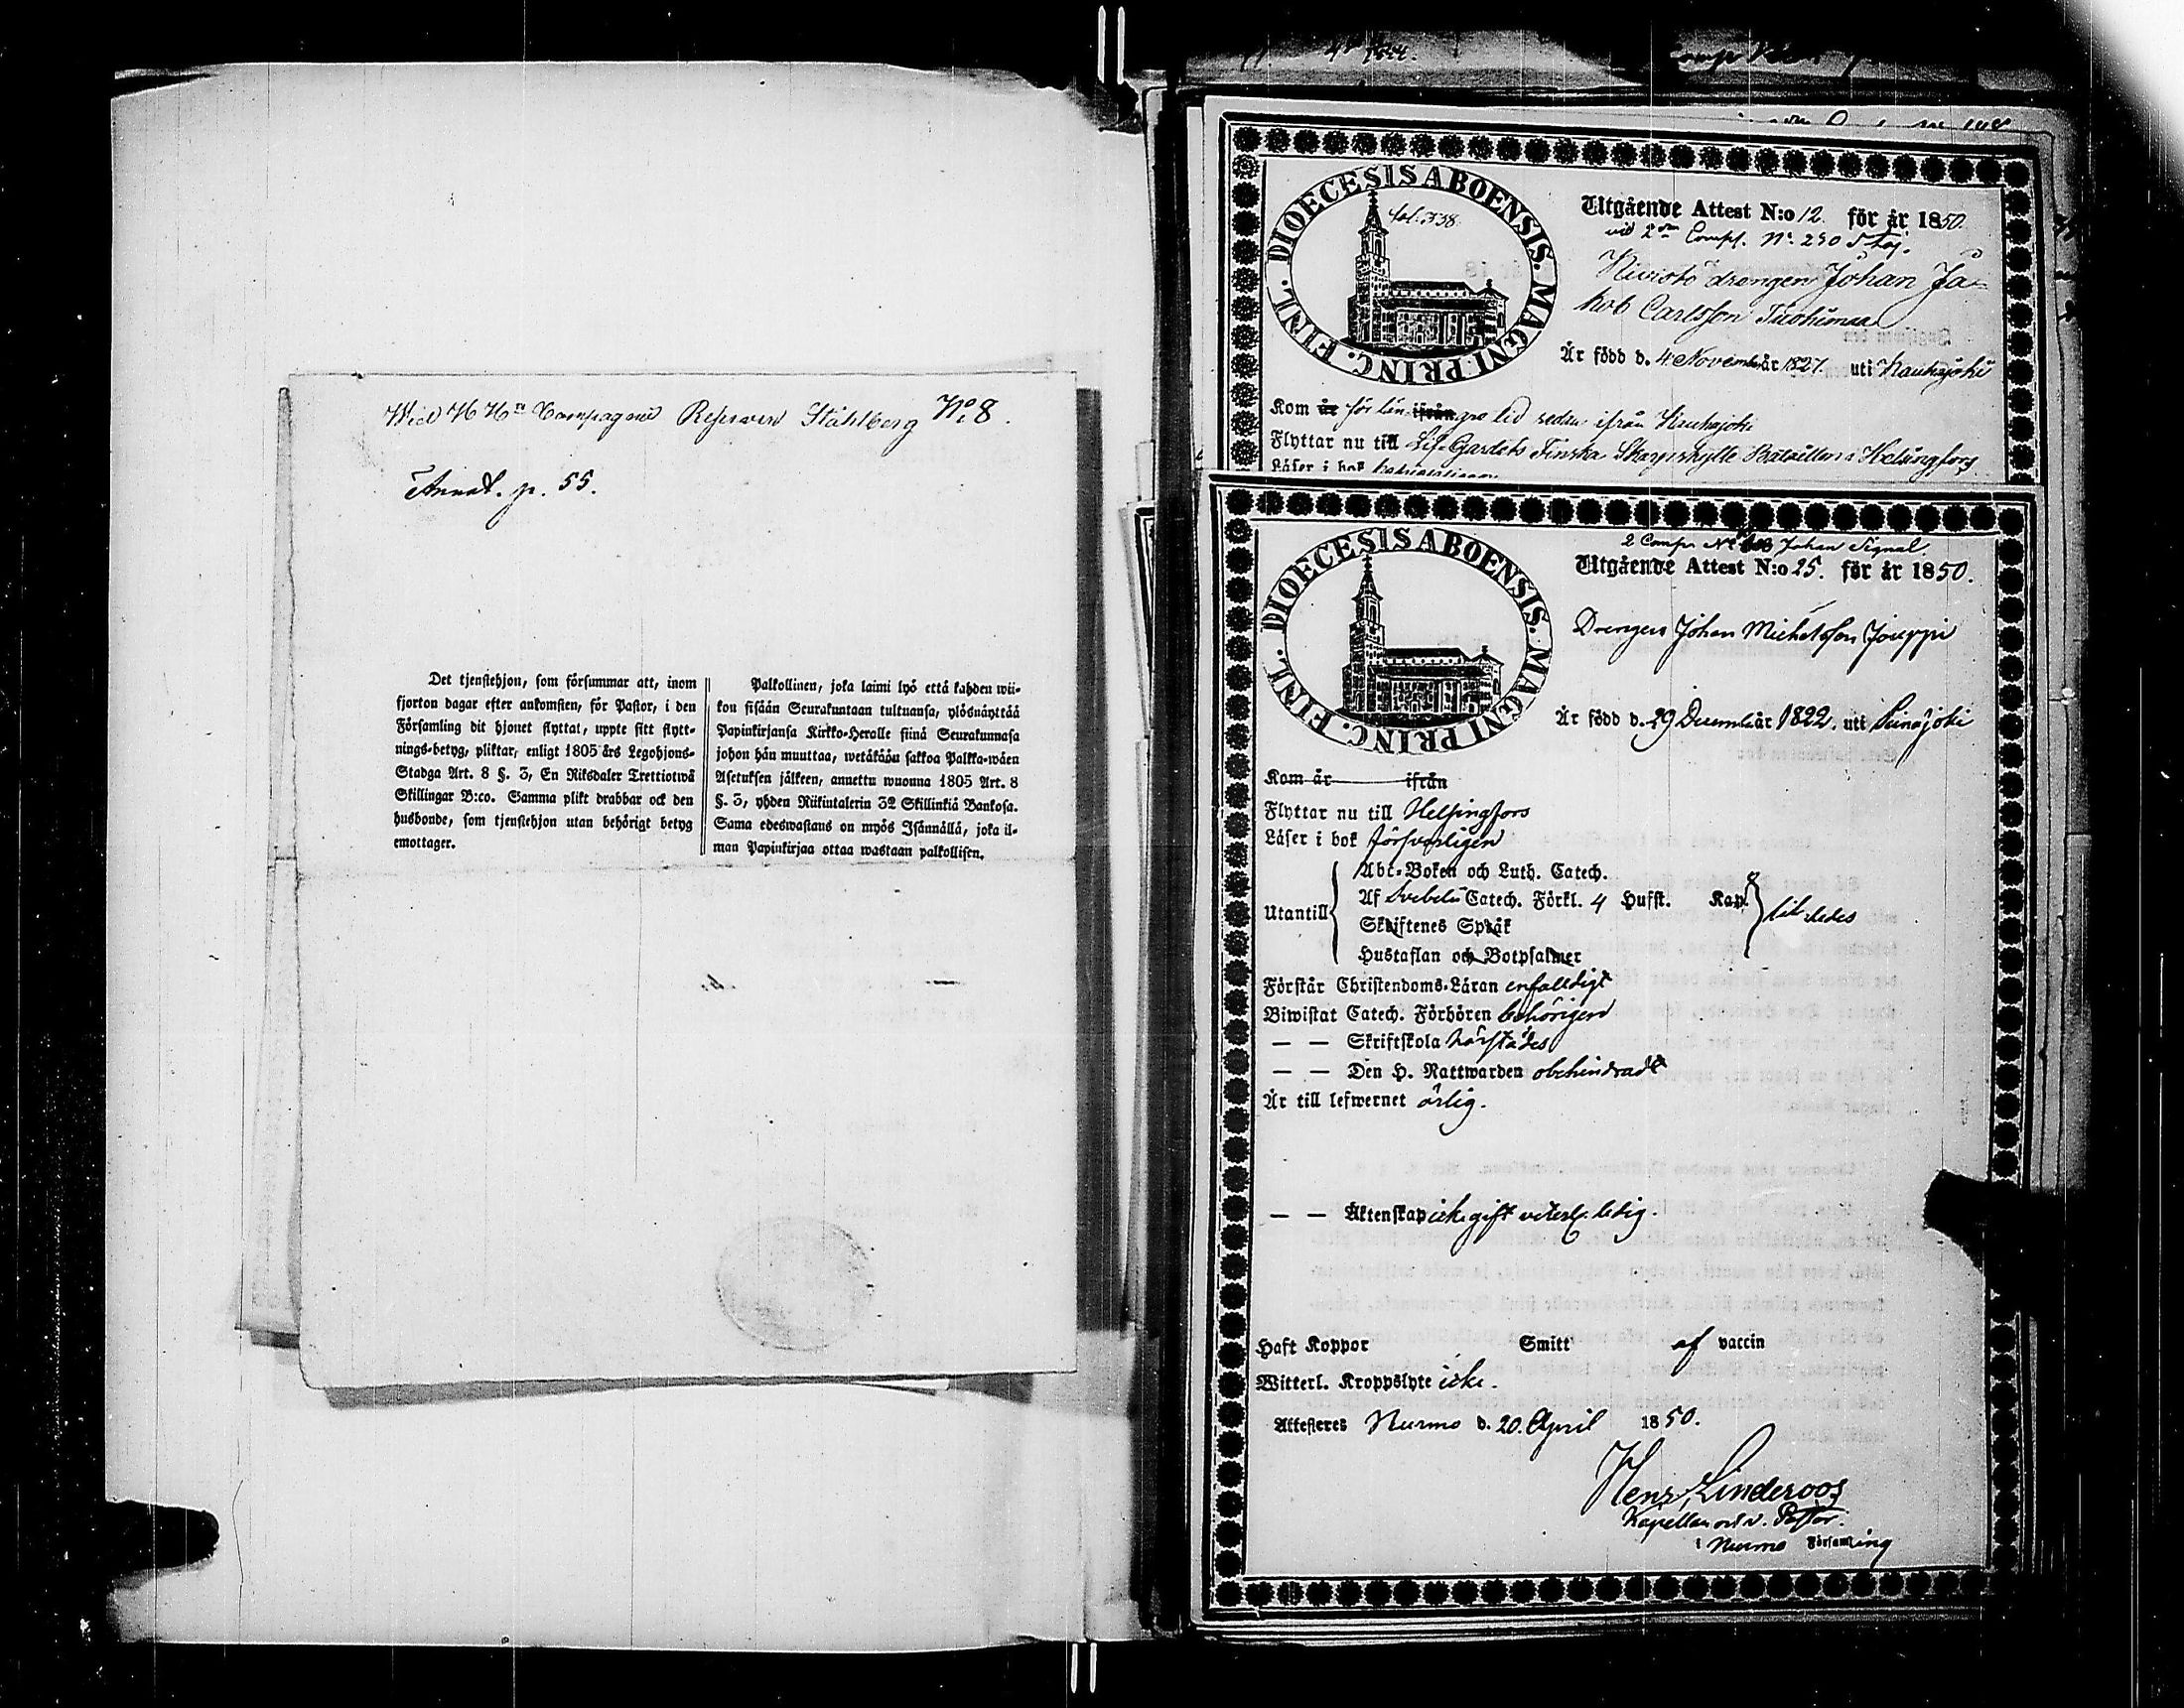 Wid H Hrs Compagnie Reserven Ståhlberg No: 8.
Annot. p. 55.
Det tjenstehjon, som försummar att, inom
fjorton dagar efter ankomsten, för Pastor, i den
Församling dit hjonet flyttat, uppte sitt flytt-
nings-betyg, pliktar, enligt 1805 års Legohjons-
Stadga Art. 8 §. 3, En Riksdaler Trettiotwå
Skillingar B:co. Samma plikt drabbar ock den
husbonde, som tjenstehjon utan behörigt betyg
emottager.
Palkollinen, joka laimi lyö että kahden wii-
kon sisään Seurakuntaan tultuansa, ylösnäyttää
Papinkirjansa Kirkko-Heralle siinä Seurakunnasa
johon hän muuttaa, wetäkään sakkoa Palkka-wäen
Asetuksen jälkeen, annettu wuonna 1805 Art. 8
§. 3, yhden Riikintalerin 32 Skillinkiä Bankosa.
Sama edeswastaus on myös Isännällä, joka il-
man Papinkirjaa ottaa wastaan palkollisen.
DIOECESIS ABOENSIS. MAGNI PRINC. FINL.
Utgående Attest N:o 12. för år 1850.
vid 2dra Comp. No. 230
drengen Johan Ja-
kob Carlsson Tuohimaa
Är född d. 4 November år 1827. uti Kauhajoki
Kom år för län ifrån gre tid sedan ifrån Kauhajoki
Flyttar nu till Lif-Gardets Finska Skarpskytte Bataillon i Helsingfors
Läser i bok
2 Comp. No Johan Signal
DIOECESIS ABOENSIS. MAGNI PRINC. FINL.
Utgående Attest N:o 25. för år 1850.
Drengen Johan Michelsson Jouppi
Är född d. 29 December år 1822. uti Seinäjoki
Kom år ifrån
Flyttar nu till Helsingfors
Läser i bok försvarligen
Utantill
Abc-Boken och Luth. Catech.
Af Svebelii Catech. Förkl. 4 Hufst. Kap.
Skriftenes Språk
Hustaflan och Botpsalmer
Förstår Christendoms-Läran enfaldigt
Biwistat Catech. Förhören behörigen
— — Skriftskola härstädes
— — Den H. Nattwarden obehindradt
Är till lefwernet ärlig.
— — Äktenskap icke gift veterl. ledig.
Haft Koppor Smitt af vaccin
Witterl. Kroppslyte icke.
Attesteres Nurmo d. 20. April 1850.
Henr. Linderoos
Kapellan och v. Pastor.
i Nurmo Församling